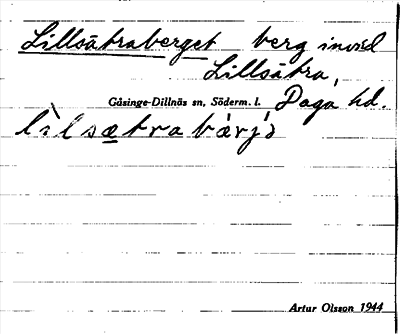 Lillsätraberget berg inom
Lillsätra,
Gåsinge-Dillnäs sn, Söderm. l. Daga hd.
lìlsætrabárjə
Artur Olsson 1944